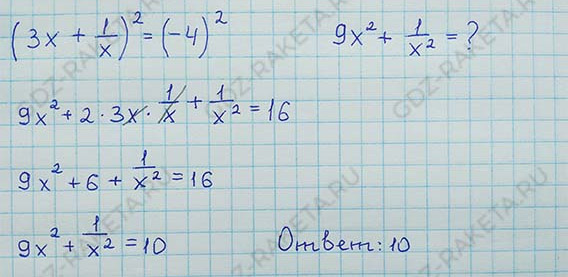 (3x + 1/x)² = (-4)²  9x² + 1/x² = ?
9x² + 2 · 3x · 1/x + 1/x² = 16
9x² + 6 + 1/x² = 16
9x² + 1/x² = 10  Ответ: 10
GDZ-RAKETA.RU